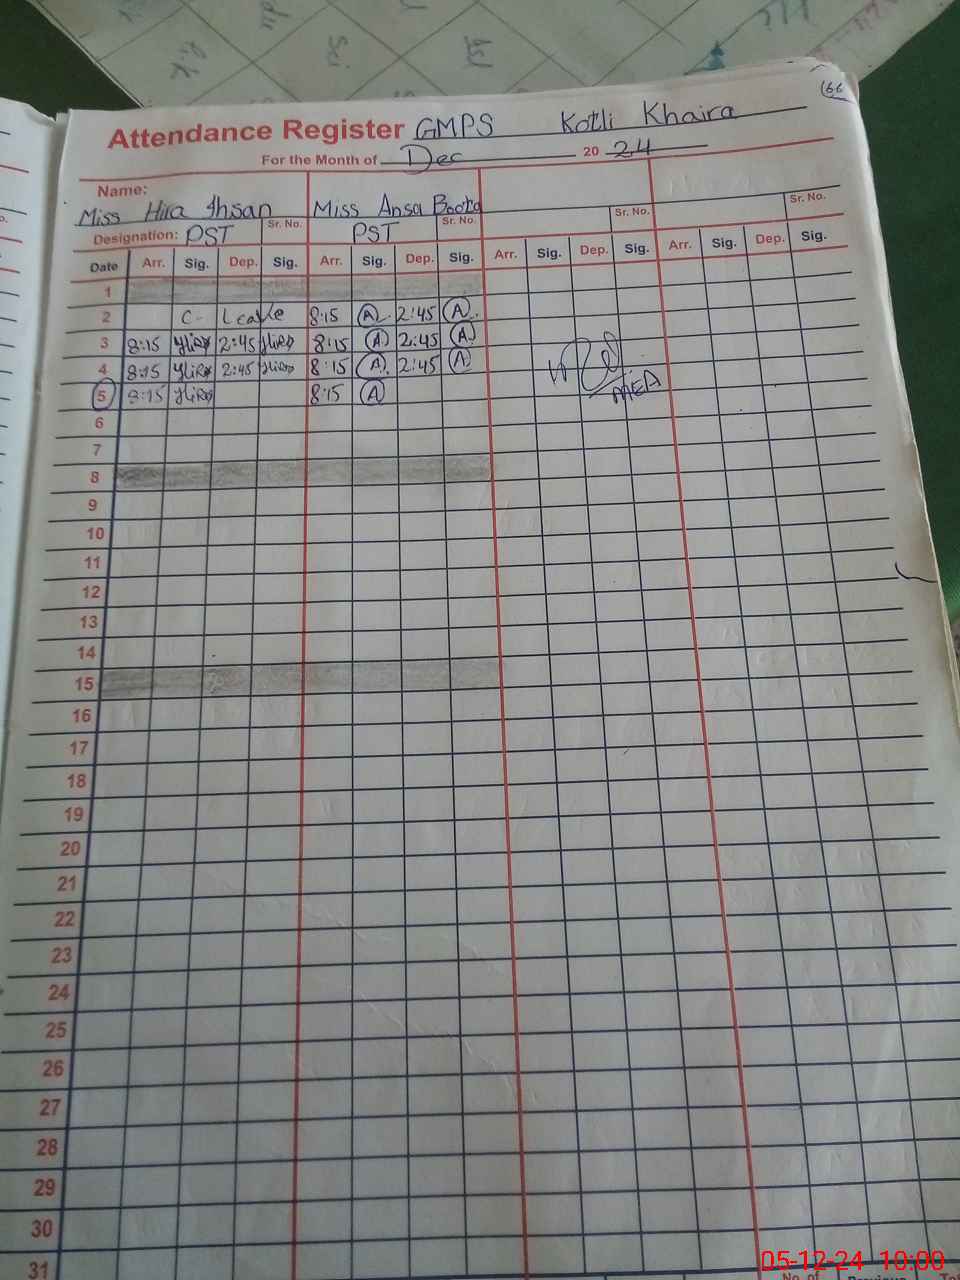 (66
Attendance Register GMPS Kotli Khaira
For the Month of Dec 20 24
Name:
Miss Hira Ihsan Miss Ansa Boota
Sr. No. Sr. No. Sr. No. Sr. No.
Designation: PST PST
Date Arr. Sig. Dep. Sig. Arr. Sig. Dep. Sig. Arr. Sig. Dep. Sig. Arr. Sig. Dep. Sig.
1
2 C- Leave 8:15 A 2:45 A
3 8:15 Hira 2:45 Hira 8:15 A 2:45 A
4 8:15 Hira 2:45 Hira 8:15 A 2:45 A
5 8:15 Hira 8:15 A
MEA
6
7
8
9
10
11
12
13
14
15
16
17
18
19
20
21
22
23
24
25
26
27
28
29
30
31
05-12-24 10:00
No. of Previous